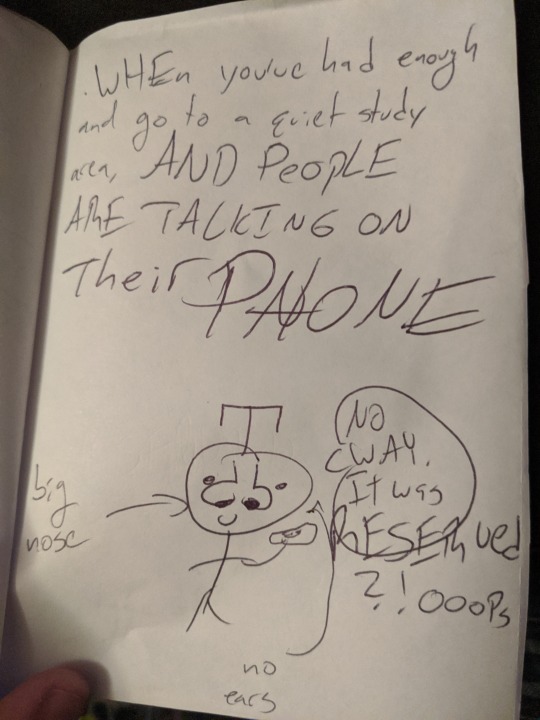 .WHEn you'vc had enough
and go to a quiet study
area, AND PEoPLE
ARE TALKING ON
Their PHONE
big
nose
NO
WAY.
It was
RESERved
?! OOOPs
no
ears